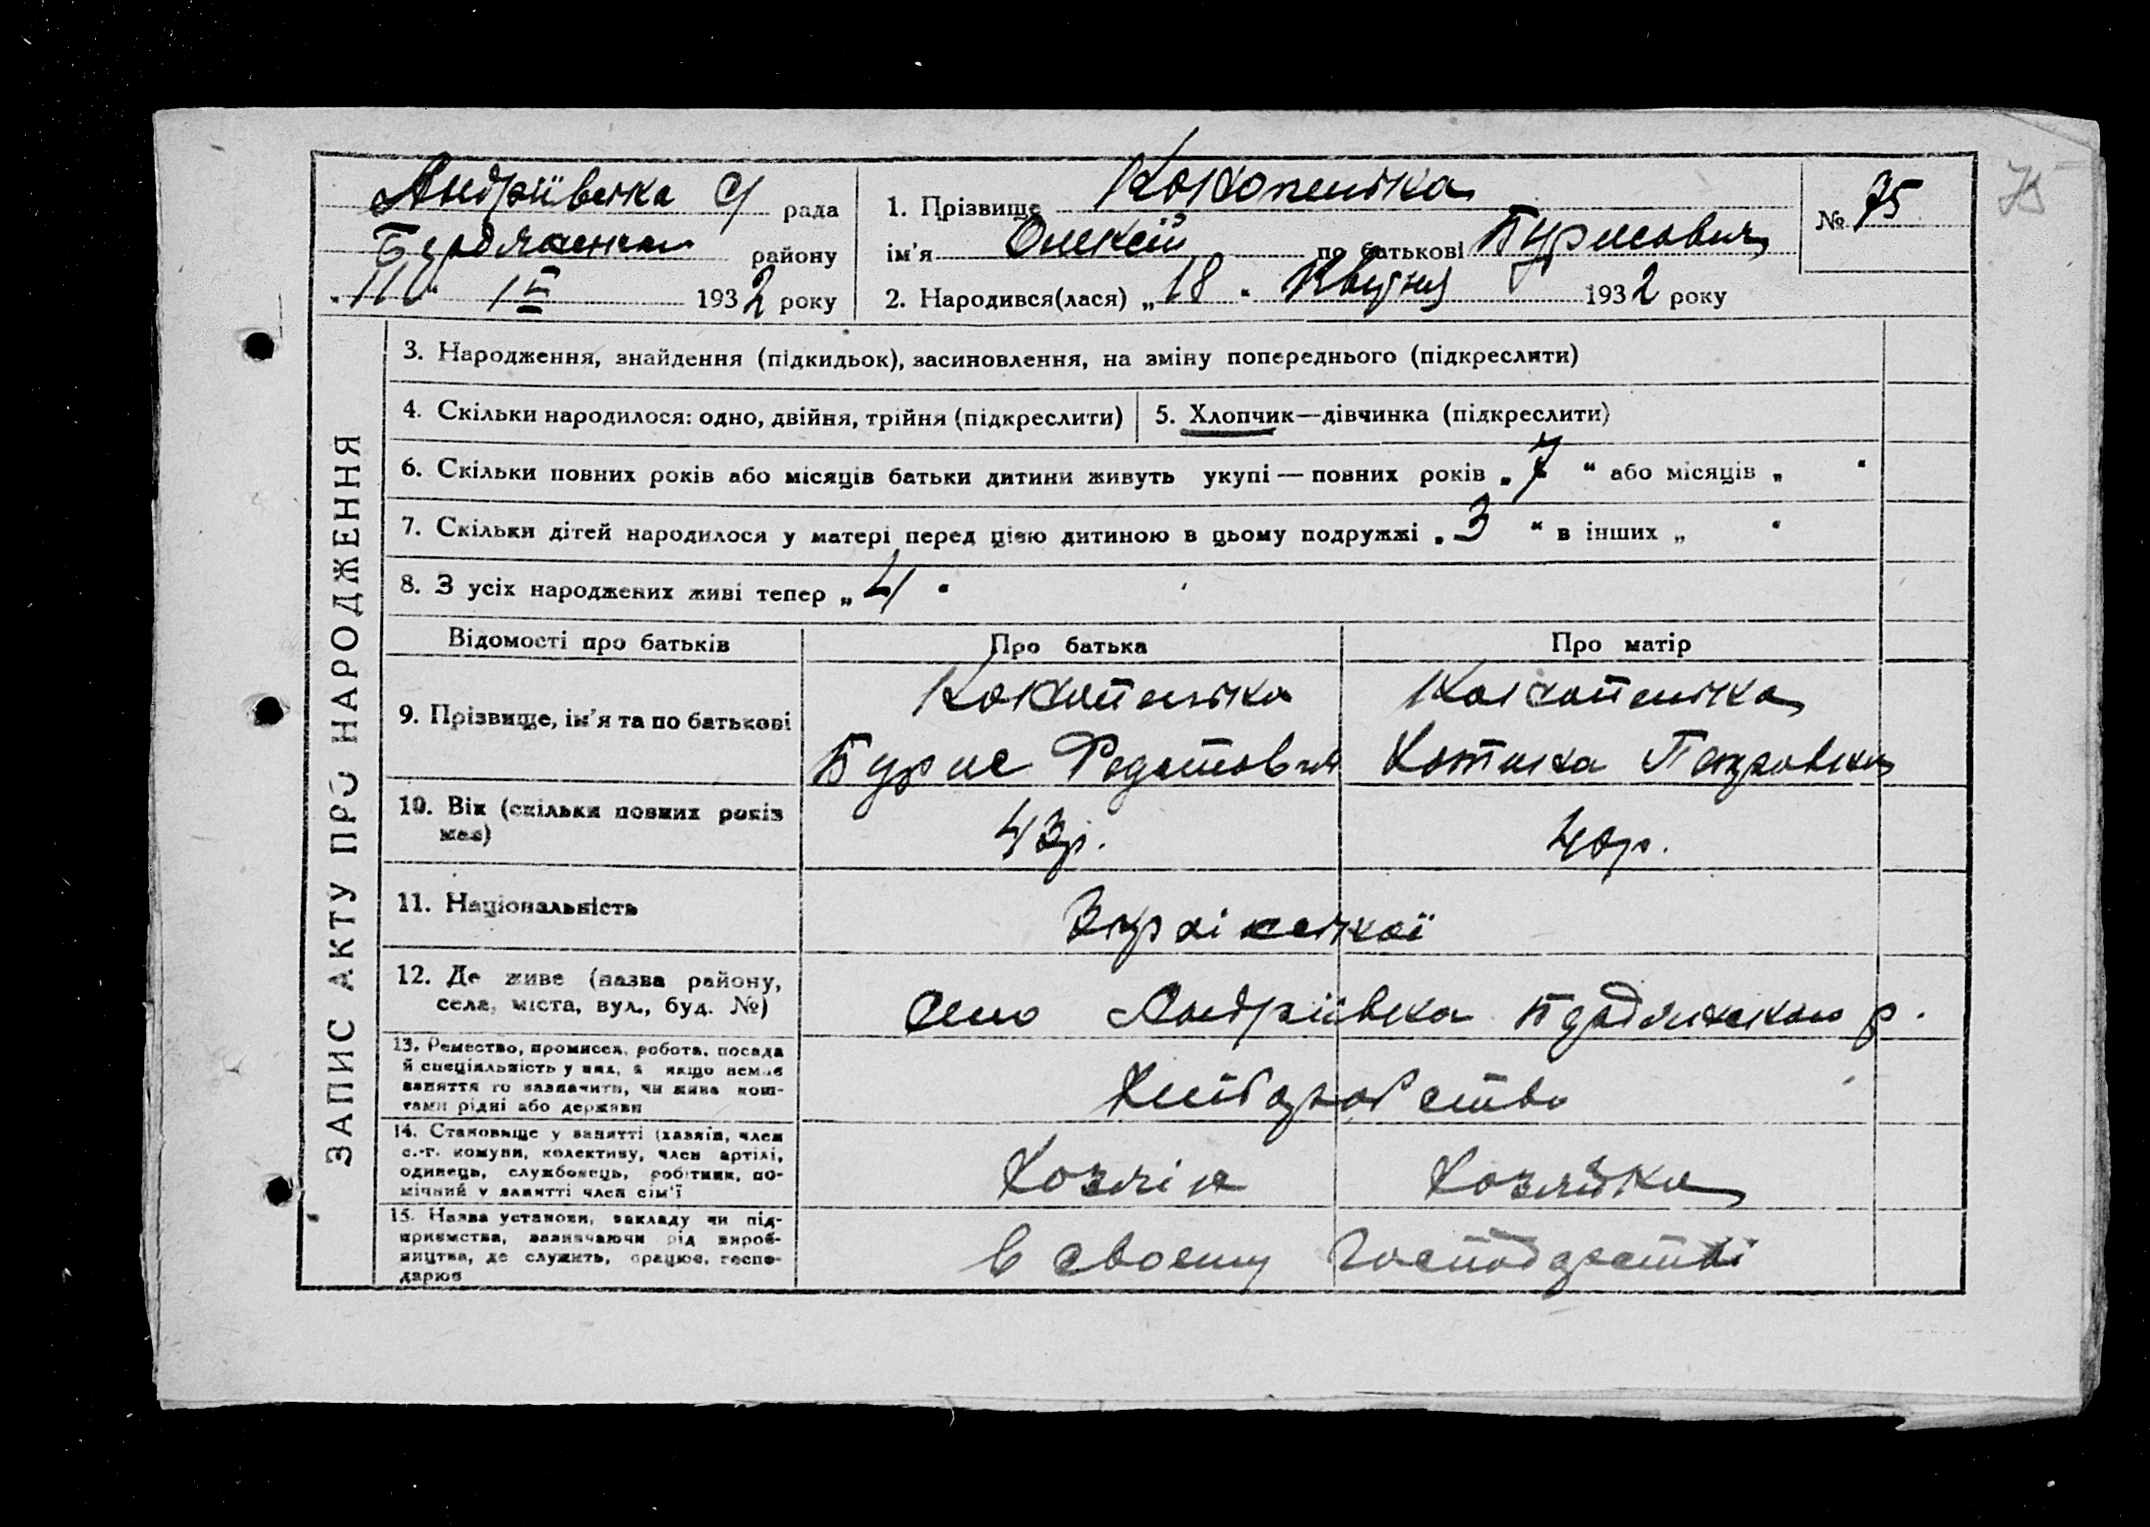 Андріївська С/ рада
району
1932 року
1. Прізвище Кокопенька
ім'я Олексій по батькові Бурисович
2. Народився(лася) „18" Квітня 1932 року
№ 75
75
ЗАПИС АКТУ ПРО НАРОДЖЕННЯ
3. Народження, знайдення (підкидьок), засиновлення, на зміну попереднього (підкреслити)
4. Скільки народилося: одно, двійня, трійня (підкреслити)
5. Хлопчик—дівчинка (підкреслити)
6. Скільки повних років або місяців батьки дитини живуть укупі — повних років „7" або місяців „ "
7. Скільки дітей народилося у матері перед цією дитиною в цьому подружжі „3" в інших „ "
8. З усіх народжених живі тепер „4"
Відомості про батьків
Про батька
Про матір
9. Прізвище, ім'я та по батькові
Кокопенька
Бурис
Кокопенька
Петровна
10. Вік (скільки повних років має)
43р.
40р.
11. Національність
Вкраінської
12. Де живе (назва району,
села, міста, вул., буд. №)
село Андріївка р.
13. Ремество, промисел, робота, посада
й спеціяльність у них, а якщо немає
заняття то зазначити, чи жива кош-
тами рідні або держави
Хлібаробство
14. Становище у занятті (хазяїн, член
с.-г. комуни, колективу, член артілі,
одинець, службовець, робітник, по-
мічний у занятті член сім'ї
Хозяін
Хозяйка
15. Назва установи, закладу чи під-
приємства, зазначаючи рід вироб-
ництва, де служить, працює, госпо-
дарює
в своему господарстві